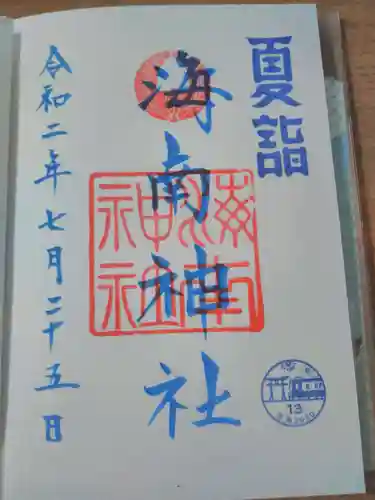 夏詣
海南神社
令和二年七月二十五日
海南神社
13